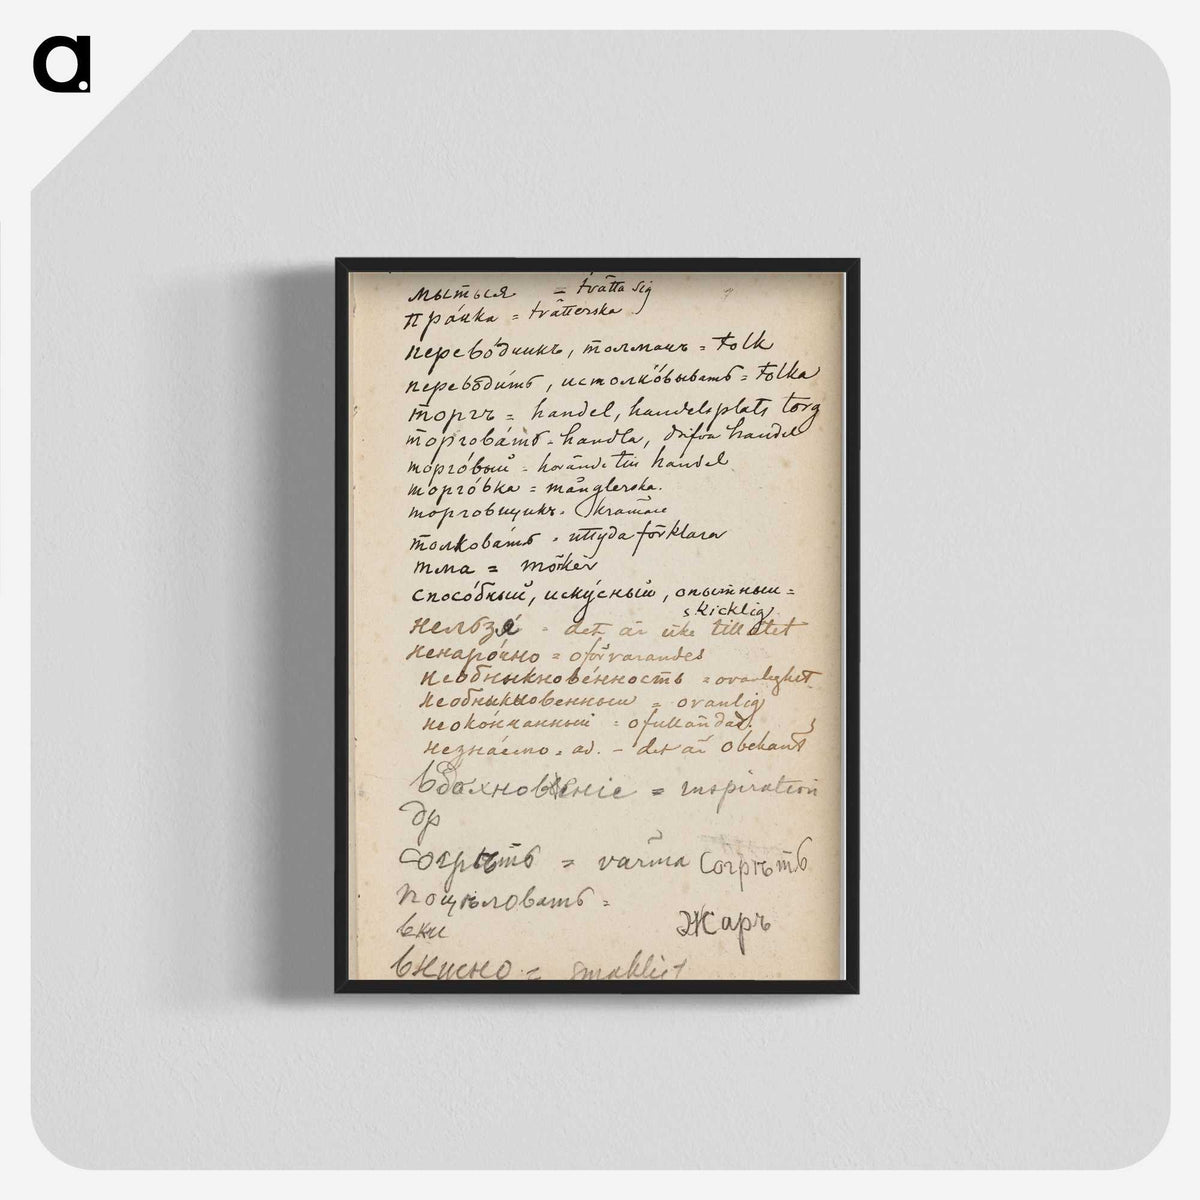 a.
мыться = tvätta sig
прáчка = tvätterska
перевóдчикъ, толмачъ = tolk
переводи́ть, истолкóвывать = tolka
торгъ = handel, handelsplats torg
торговáть = handla, drifva handel
торгóвый = hörande till handel
торгóвка = månglerska.
торговщикъ. Krämare
толковáть = uttyda förklara
тма = mörker
спосóбный, искýсный, опытный =
skicklig
нельзя́ = det är icke tillåtet
ненарóчно = oförvarandes
необныкновéнность = ovanlighet
необныкновенный = ovanlig
неокóнчанный = ofulländad.
незнáемо = av. – det är obekant
вдохновеніе = inspiration
др
согрѣть = värma Согрѣть
поцѣловать =
вки Жаръ
вкусно = smakligt